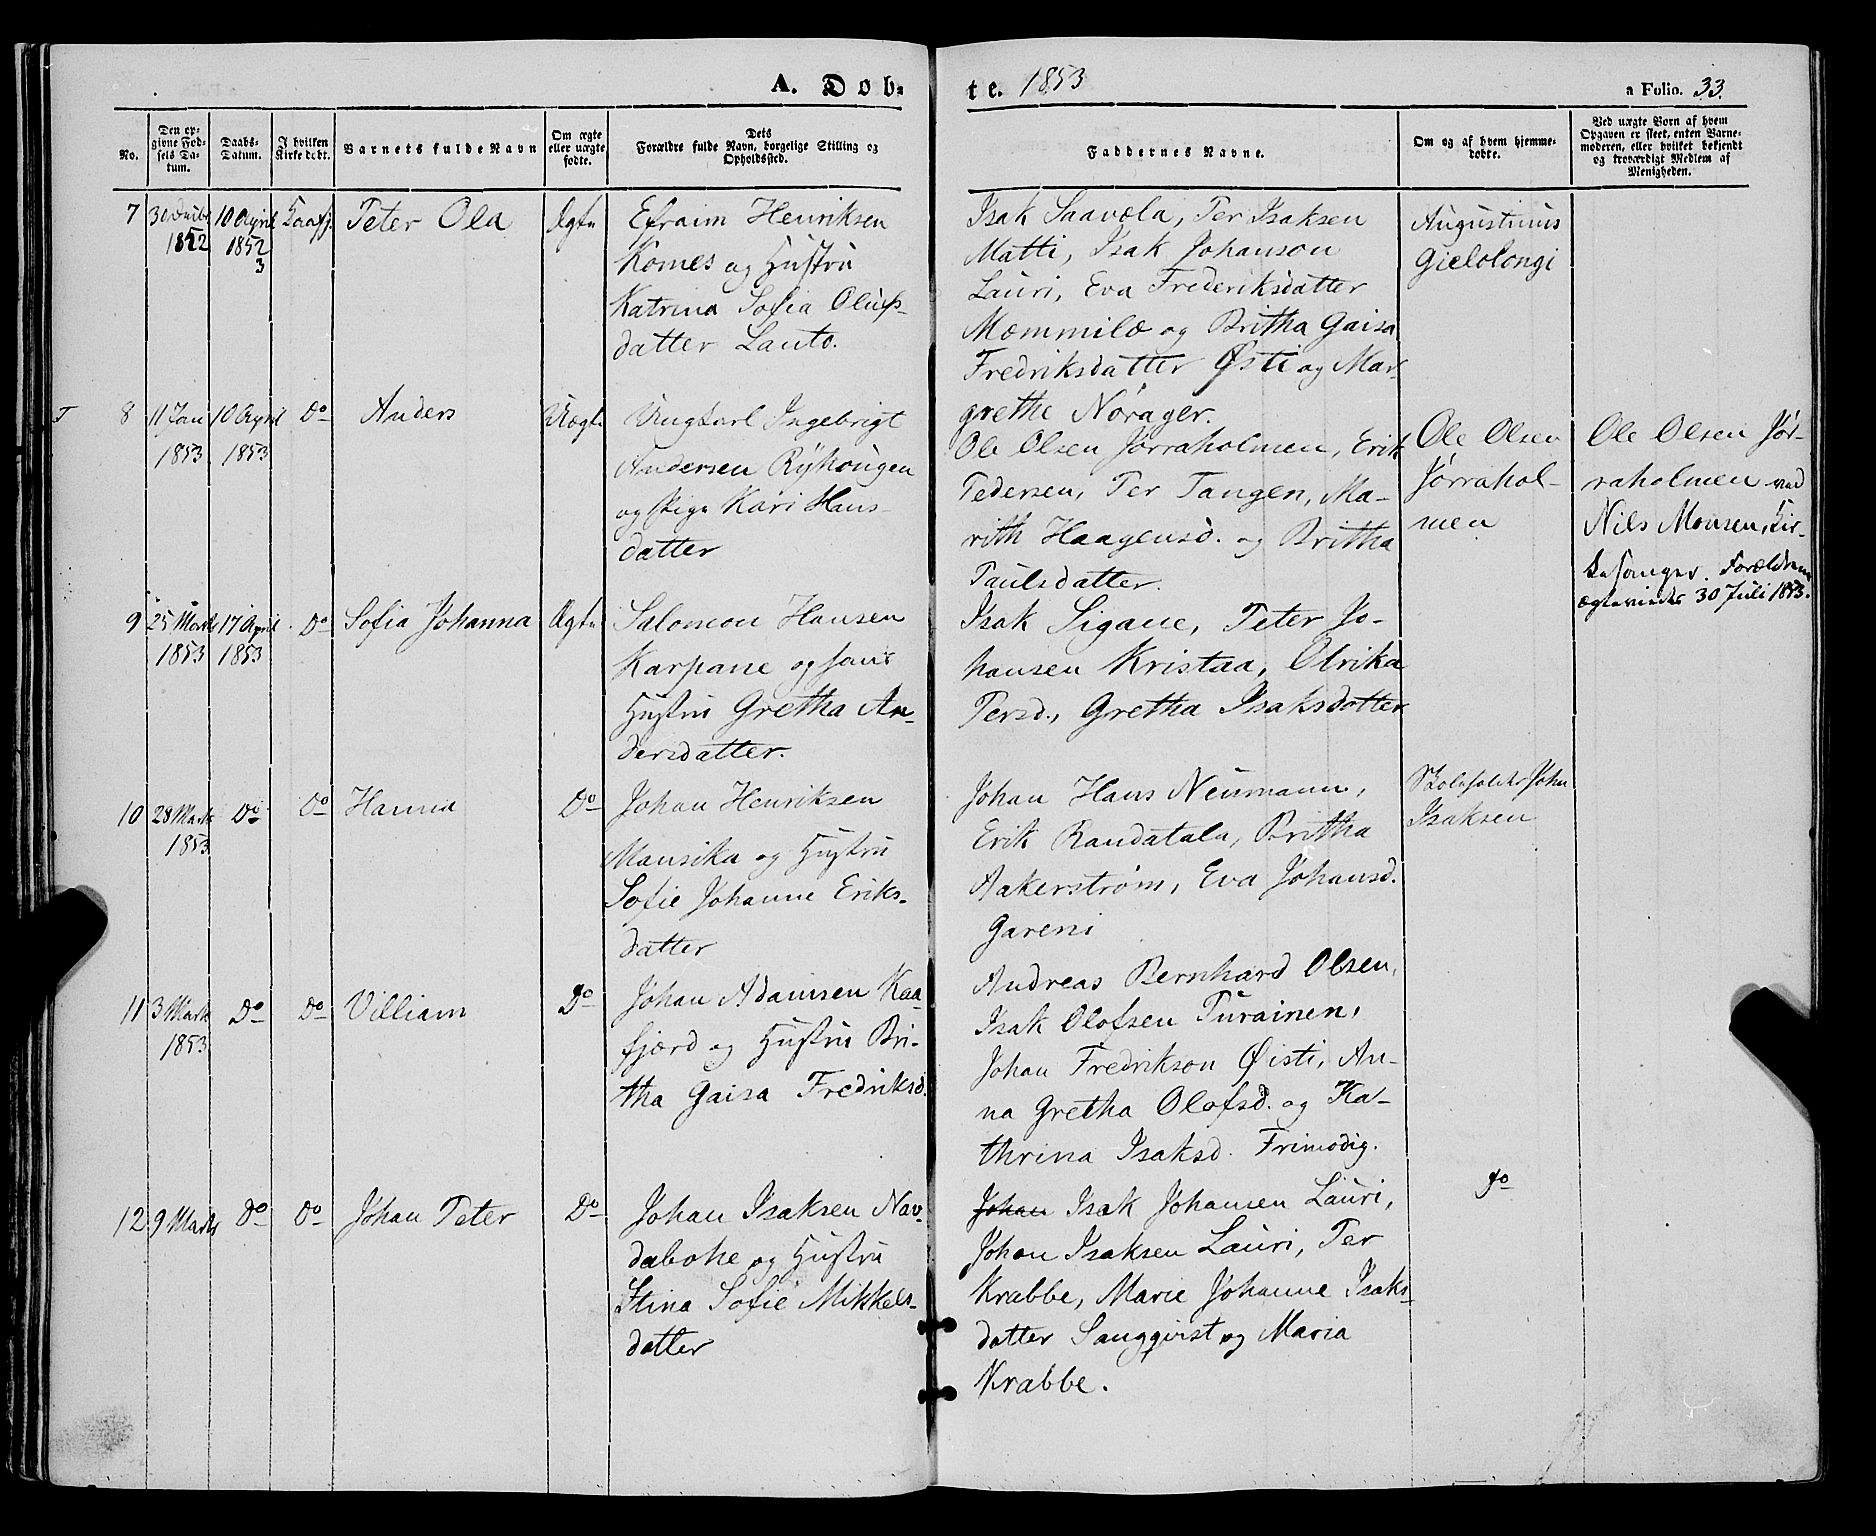 A. Døb-
te. 1853
a Folio. 33.
No.
Den op-
givne Fød-
sels Da-
tum.
Daabs-
Datum.
I hvilken
Kirke døbt.
Barnets fulde Navn
Om ægte
eller uægte
fødte.
Dets
Forældre fulde Navn, borgelige Stilling og
Opholdssted.
Faddernes Navne.
Om og af hvem hjemme-
døbte.
Ved uægte Born af hvem
Opgaven er skeet, enten Barne-
moderen, eller hvilket bekjendt
og troværdigt Medlem af
Menigheden.
7
1852
10 April
1852
3
Kaafj.
Peter Ola
Ægte
Efraim Henriksen
Komes og Hustru
Katrina Sofia Olufs-
datter Lauto.
Isak Saavola, Per Isaksen
Matti, Isak Johanson
Lauri, Eva Frederiksdatter
Mæmmilæ og Britha Gaisa
Fredriksdatter Østi og Mar-
grethe Nørager.
Augustinus
Gielolongi
8
11 Jan
1853
10 April
1853
Do
Anders
Uægte
Ungkarl Ingebrigt
Andersen Ryhougen
og Pige Kari Hans-
datter
Ole Olsen Jørraholmen, Erik
Pedersen, Per Tangen, Ma-
rith Haagensd. og Britha
Paulsdatter.
Ole Olsen
Jørrahol-
men
Ole Olsen Jør-
raholmen ved
Nils Monsen, Kir-
kesanger. Forældrene
ægteviede 30 Juli 1853.
9
25 Marts
1853
17 April
1853
Do
Sofia Johanna
Ægte
Salomon Hansen
Karpane og hans
Hustru Gretha An-
dersdatter.
Isak Sigane, Peter Jo-
hansen Kristaa, Olrika
Persd., Gretha Isaksdatter
10
28 Marts
1853
Do
Do
Hanna
Do
Johan Henriksen
Mansika og Hustru
Sofie Johanne Eriks-
datter
Johan Hans Neumann,
Erik Randatala, Britha
Aakerstrøm, Eva Johansd.
Gareni
Skoleholder John
Isaksen
11
3 Marts
1853
Do
Do
Villiam
Do
Johan Adamsen Kaa-
fjord og Hustru Bri-
tha Gaisa Fredriksd.
Andreas Bernhard Olsen,
Isak Olofsen Turainen,
Johan Fredrikson Øisti, An-
na Gretha Olofsd. og Ka-
thrina Isaksd. Frimodig.
12
9 Marts
Do
Do
Johan Peter
Do
Johan Isaksen Nav-
dabohe og Hustru
Stina Sofie Mikkels-
datter
Johan Isak Johansen Lauri,
Johan Isaksen Lauri, Per
Krabbe, Marie Johanne Isaks-
datter Sangqvist og Maria
Krabbe.
Do